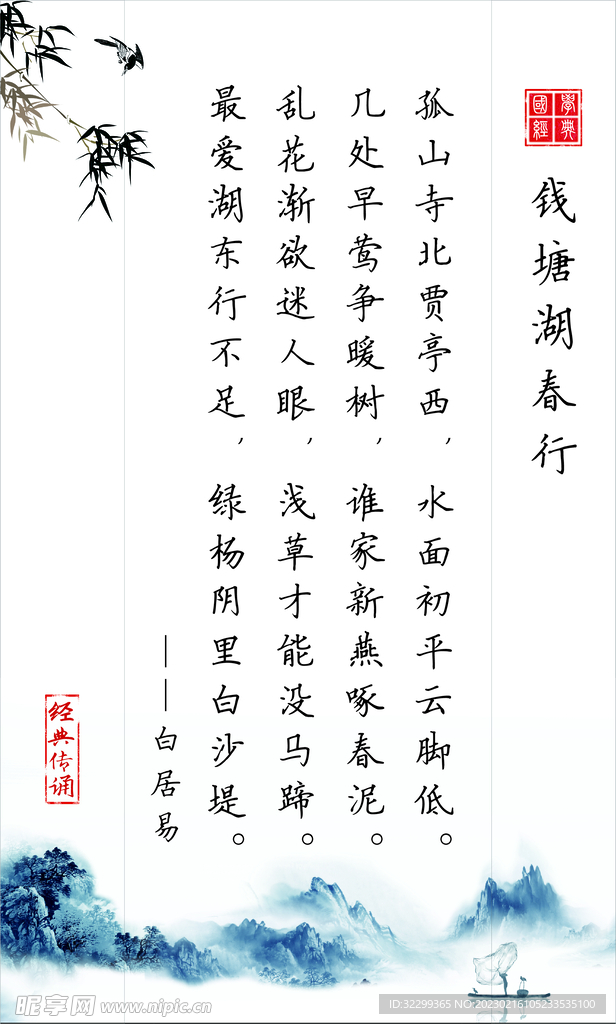 國學經典
钱塘湖春行
孤山寺北贾亭西，水面初平云脚低。
几处早莺争暖树，谁家新燕啄春泥。
乱花渐欲迷人眼，浅草才能没马蹄。
最爱湖东行不足，绿杨阴里白沙堤。
——白居易
经典传诵
昵享网 www.nipic.cn
ID:32299365 NO:20230216105233535100